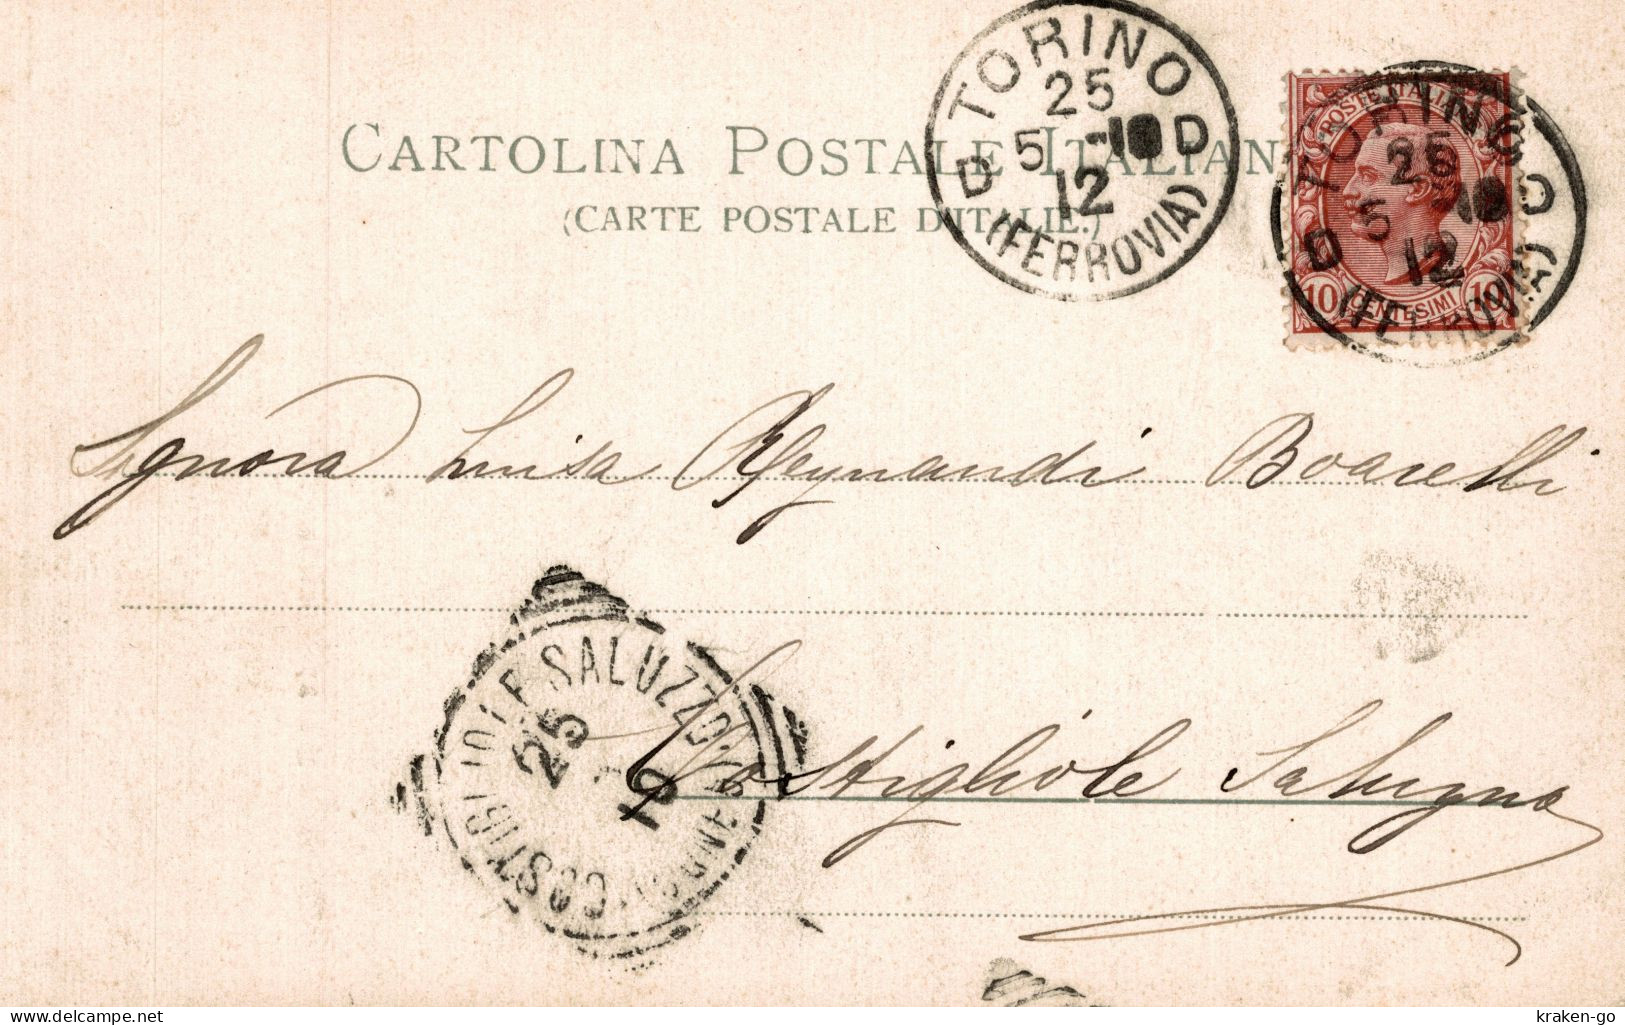 CARTOLINA POSTALE ITALIAN
(CARTE POSTALE D'ITALIE.)
TORINO
25
5 -10 D
D 12
(FERROVIA)
POSTE ITALIANE
10 CENTESIMI 10
TORINO
25
5 -10 D
D 12
(FERROVIA)
Signora Luisa Reynaudi Boarelli
COSTIGLIOLE SALUZZO
25
10
Costigliole Saluzzo
delcampe.net
kraken-go